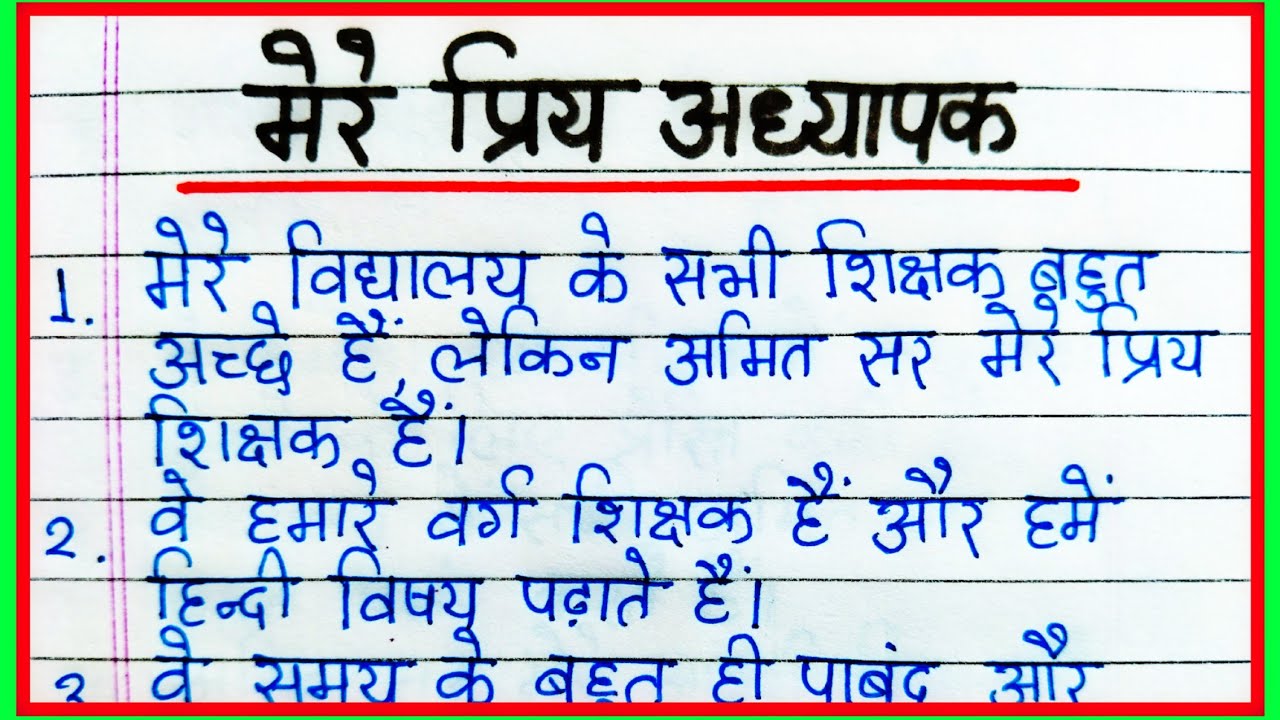 मेरे प्रिय अध्यापक
1. मेरे विद्यालय के सभी शिक्षक बहुत
अच्छे हैं, लेकिन अमित सर मेरे प्रिय
शिक्षक हैं।
2. वे हमारे वर्ग शिक्षक हैं और हमें
हिन्दी विषय पढ़ाते हैं।
3 वे समय के बहुत ही पाबंद और